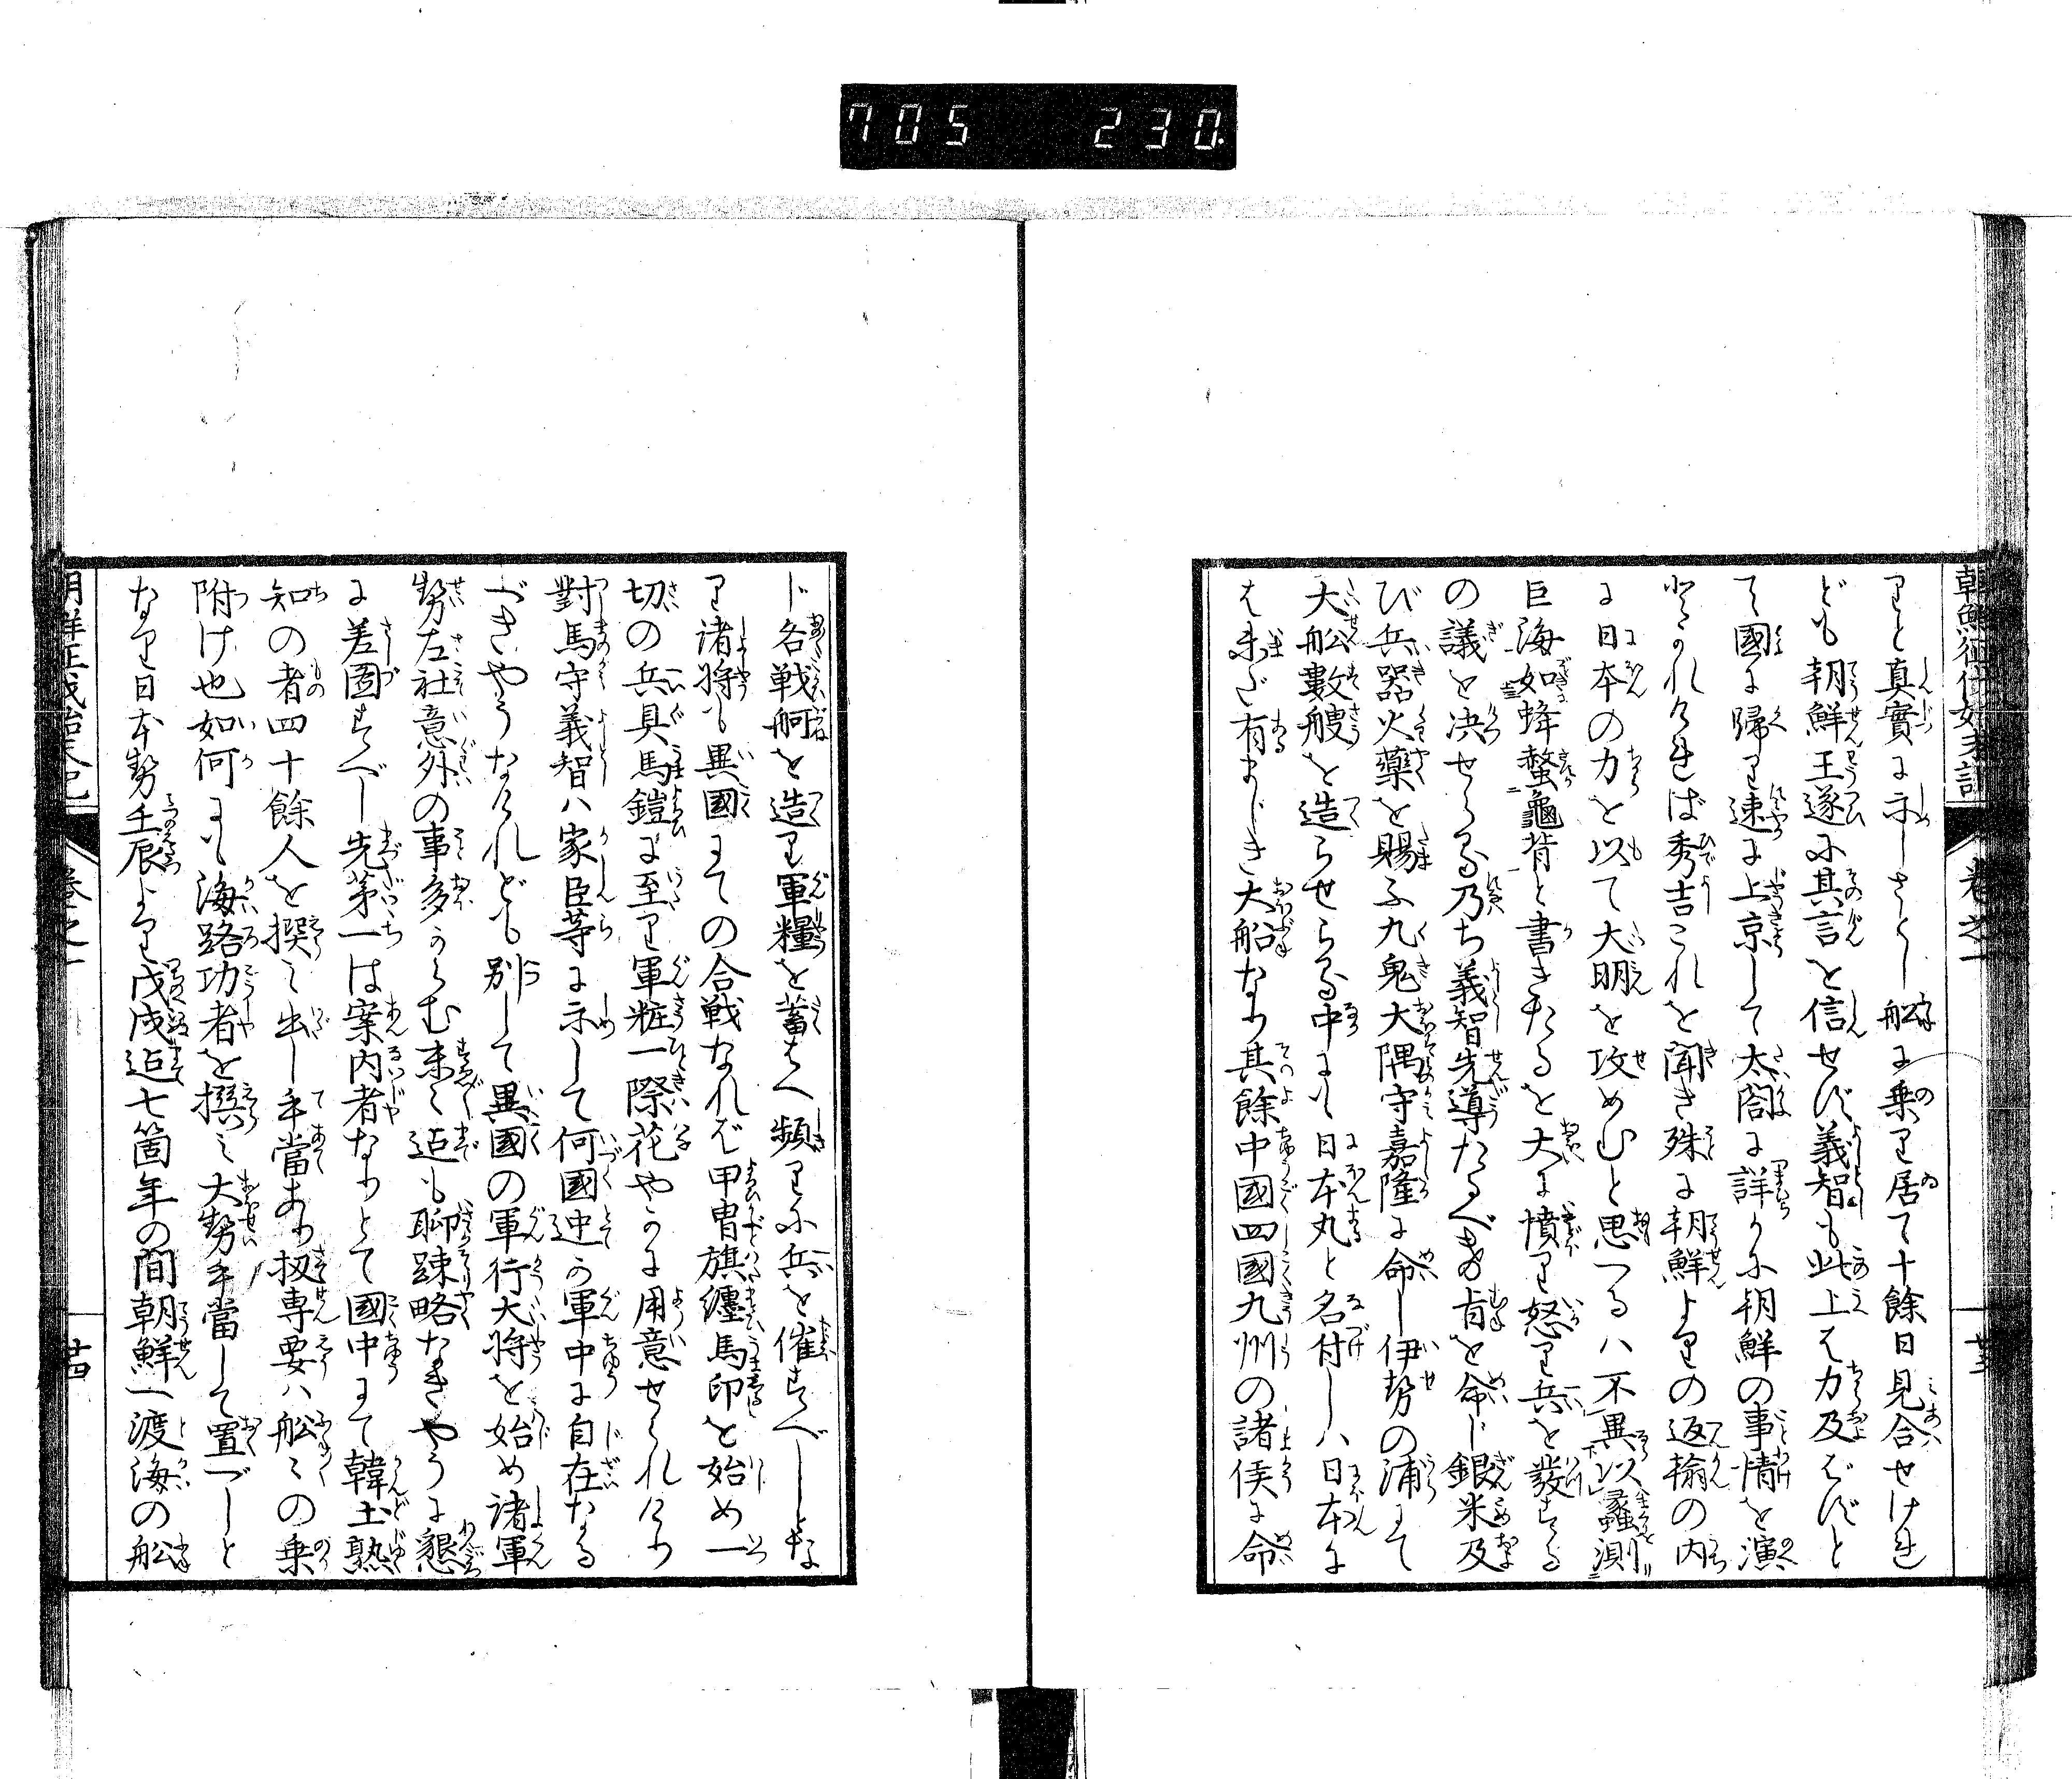 705 230.
朝鮮征伐始末記
卷之一
廿三
りと真實に示しさとし舩に乗り居て十餘日見合せけれ
ども朝鮮王遂に其言を信せず義智も此上は力及ばずと
て國に歸り速に上京して太閤に詳かに朝鮮の事情を演
られければ秀吉これを聞き殊に朝鮮よりの返翰の内
に日本の力を以て大明を攻めむと思へるハ不異以蠡測
巨海如蜂螫龜背と書きたるを大に憤り怒り兵を發する
の議を决せらる乃ち義智先導たるべき旨を命じ銀米及
び兵器火藥を賜ふ九鬼大隅守嘉隆に命し伊勢の浦にて
大舩數艘を造らせらる中にも日本丸と名付しハ日本に
は未だ有まじき大船なり其餘中國四國九州の諸侯に命
じ各戦舸を造り軍糧を蓄はへ頻りに兵を催すべしとな
り諸将も異國にての合戦なれば甲冑旗纏馬印を始め一
切の兵具馬鎧に至り軍粧一際花やかに用意せられけり
對馬守義智ハ家臣等に示して何國迚か軍中に自在なる
べきやうなけれども別して異國の軍行大将を始め諸軍
勢左社意外の事多からむ末々迠も聊踈略なきやうに懇
に差圖すべし先第一は案内者なりとて國中にて韓土熟
知の者四十餘人を撰み出し手當あり扨専要ハ舩々の乗
附け也如何にも海路功者を撰み大勢手當して置べしと
なり日本勢壬辰より戊戌迠七箇年の間朝鮮へ渡海の舩
朝鮮征伐始末記
卷之一
廿四